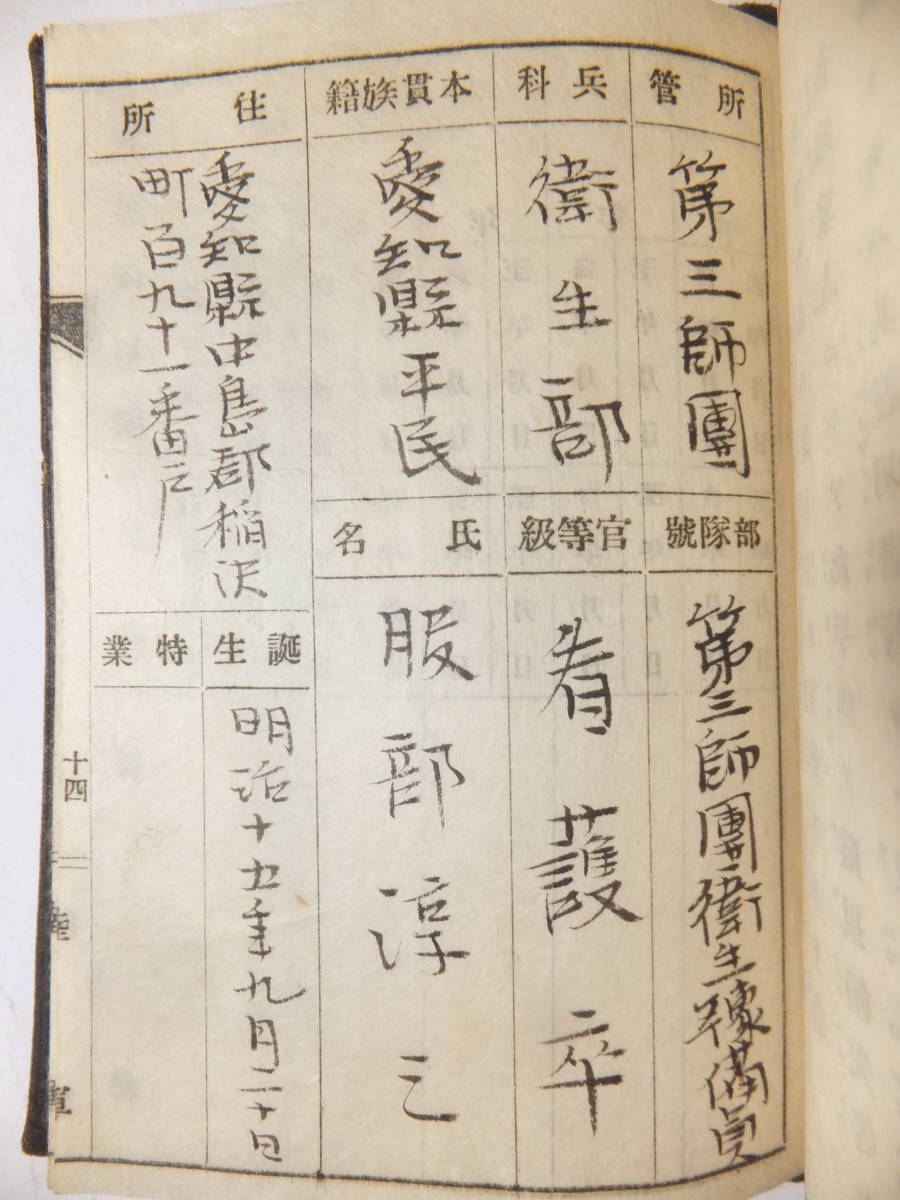 所管
第三師團
部隊號
第三師團衛生豫備員
兵科
衛生部
官等級
看護卒
本貫族籍
愛知縣平民
氏名
服部淳三
住所
愛知縣中島郡稲沢
町百九十一番戸
誕生
明治十五年九月二十日
特業
十四
陸
軍